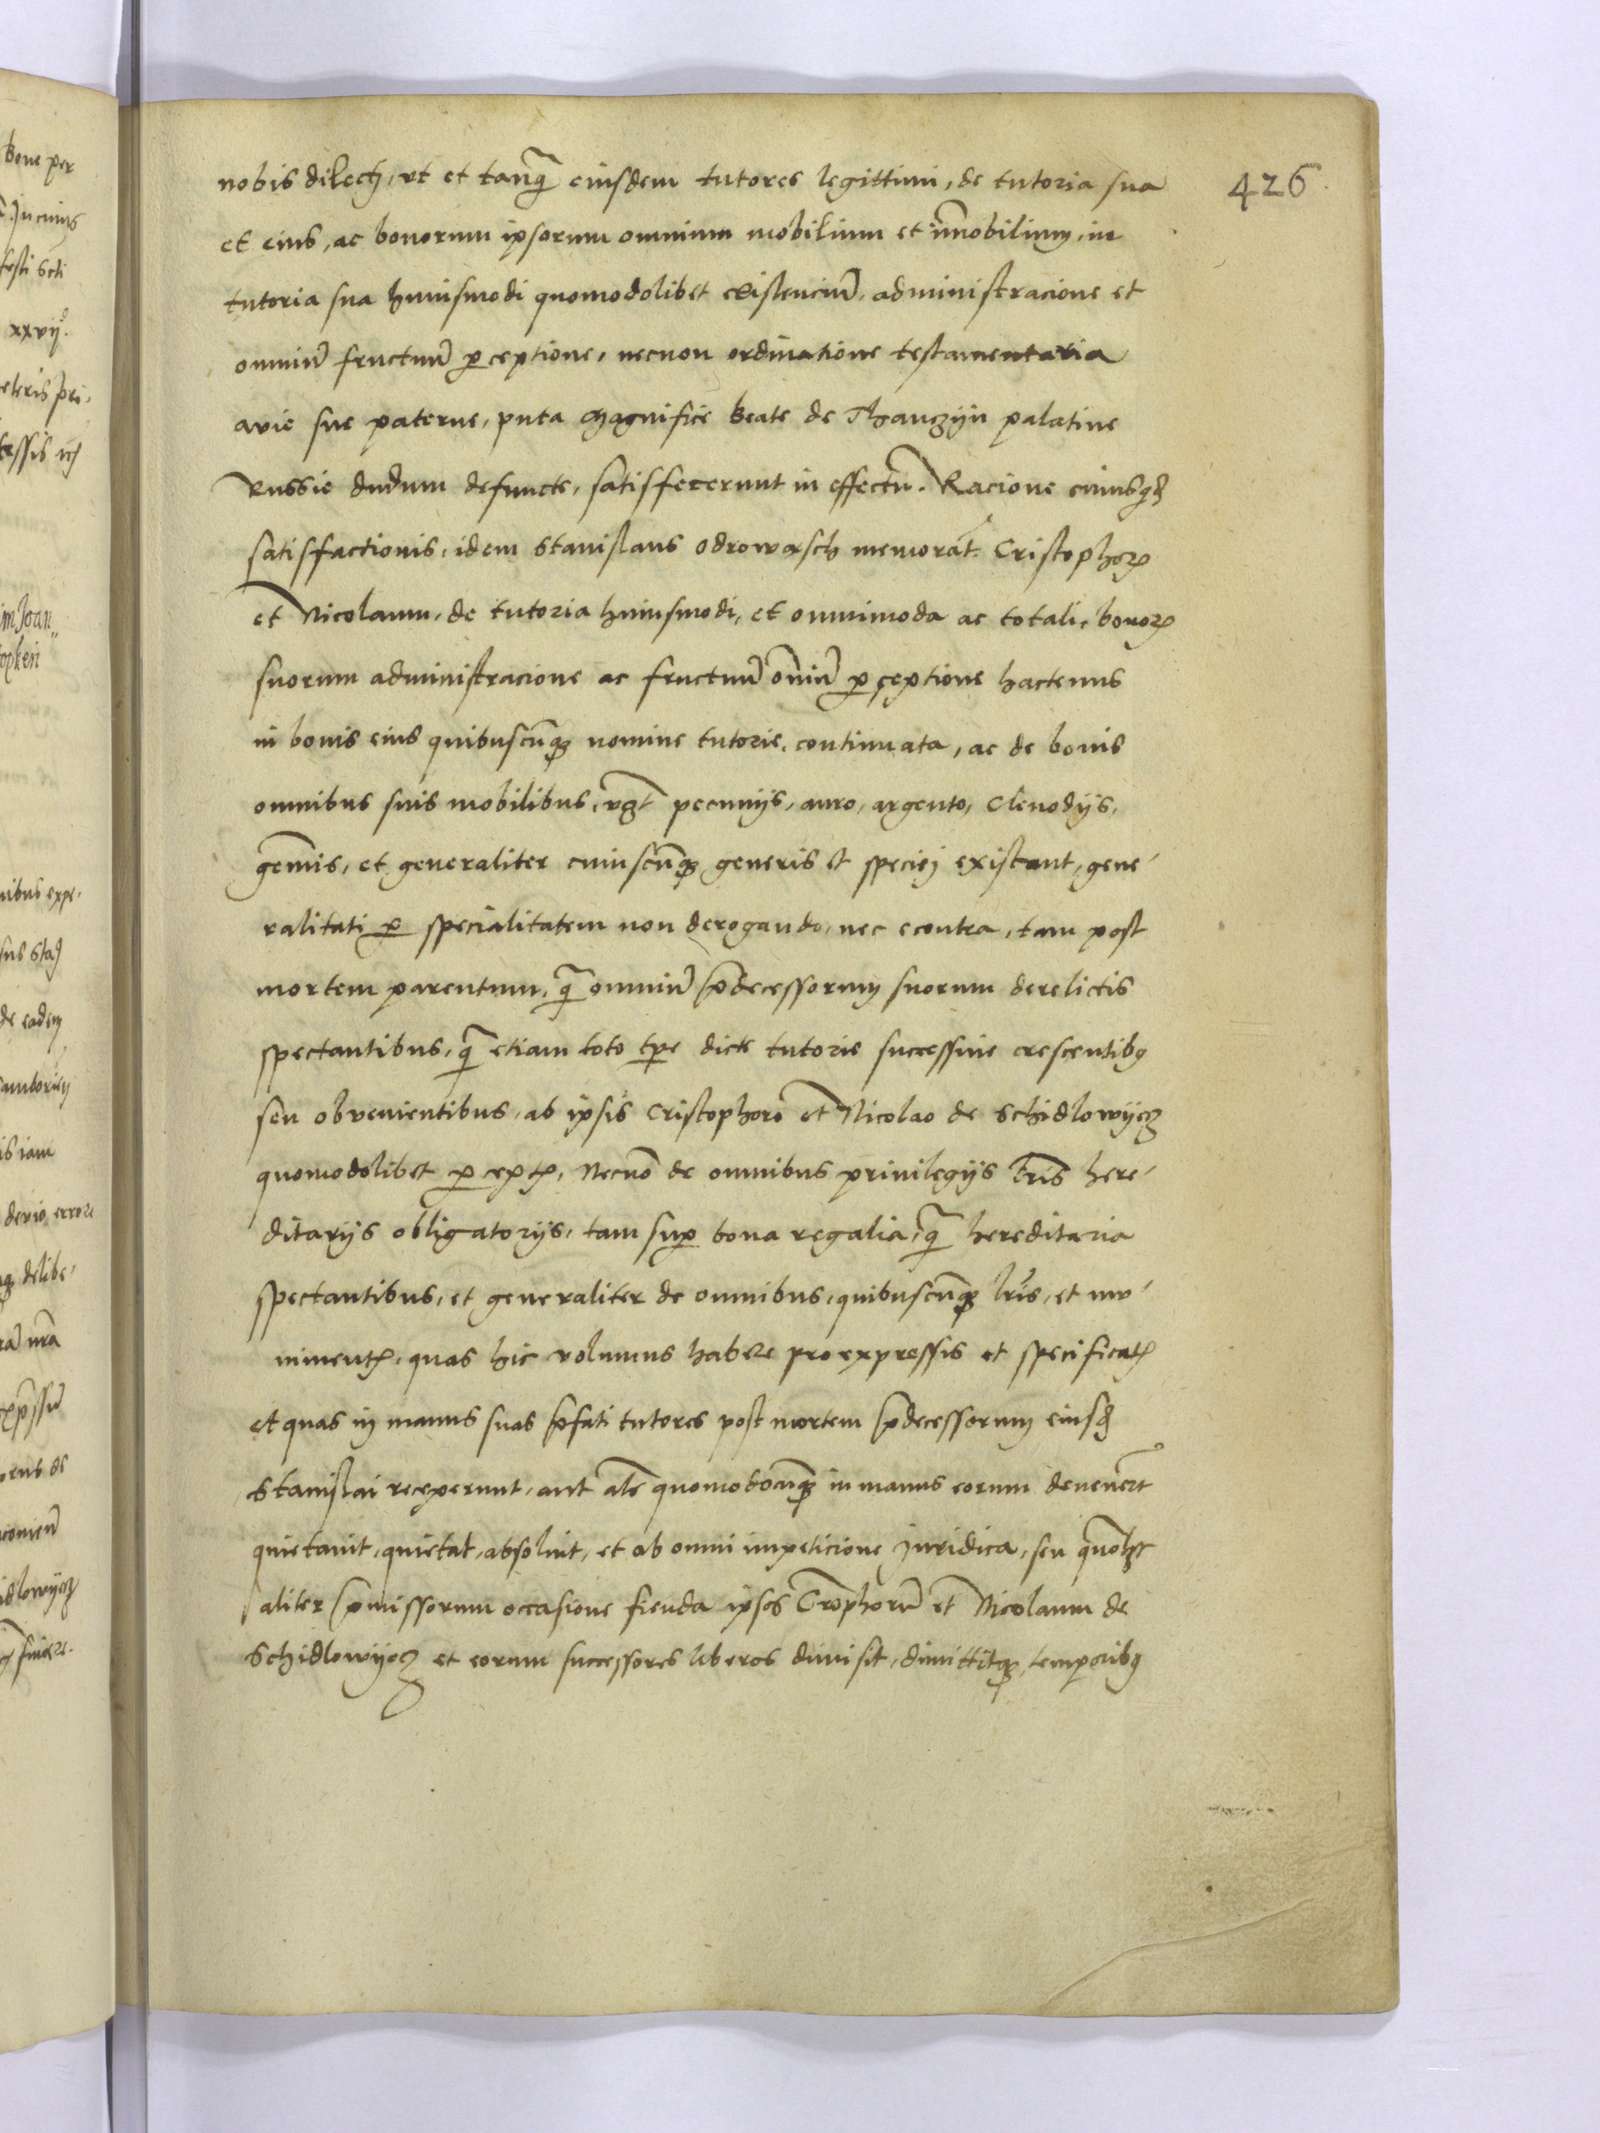 426
nobis dilecti, vt et tanq̃ eiusdem tutores legittimi, de tutoria sua
et eius, ac bonorum ipsorum omnium mobilium et im̃obilium, in
tutoria sua huiusmodi quomodolibet existenciũ, administracione et
omniũ fructuũ ꝑceptione, necnon ordinatione testamentaria
avie sue paterne, puta Magnifice Beate de Thanczijn palatine
Russie dudum defuncte, satisfecerunt in effectũ. Racione cuiusq̃d
satisfactionis, idem Stanislaus Odrowasch memorat̃ Cristophoꝝ
et Nicolaum, de tutoria huiusmodi, et omnimoda ac totali, bonoꝝ
suorum administracione ac fructuũ om̃iũ ꝑceptione hactenus
in bonis eius quibuscũqꝫ nomine tutorie, continuata, ac de bonis
omnibus suis mobilibus, vꝫt pecunijs, auro, argento, Clenodijs,
gem̃is, et generaliter cuiuscũqꝫ generis et speciej existant, gene-
ralitati ꝑ specialitatem non derogando, nec econtra, tam post
mortem parentum, q̃ omniũ p̃decessorum suorum derelictis
spectantibus, q̃ etiam toto tꝑe dicte tutorie successiue crescentibꝫ
seu obvenientibus, ab ipsis Cristophoro et Nicolao de Schidlowijecz
quomodolibet ꝑceptꝭ, Necnõ de omnibus priuilegijs lr̃is here-
ditarijs obligatorijs, tam suꝑ bona regalia, q̃ hereditaria
spectantibus, et generaliter de omnibus, quibuscũqꝫ lr̃is, et mu-
nimentꝭ, quas hic volumus habere pro expressis et specificatꝭ
et quas in manus suas p̃fati tutores post mortem p̃decessorum eiusd̃
Stanislai receperunt, aut al̃r quomodocũqꝫ in manus eorum deuener̃t
quietauit, quietat, absoluit, et ab omni impeticione Juridica, seu quõlꝫt
aliter p̃missorum occasione fienda ipsos Cr̃ophorũ et Nicolaum de
Schidlowijecz et eorum successores liberos dimisit, dimittitqꝫ, temporibꝫ